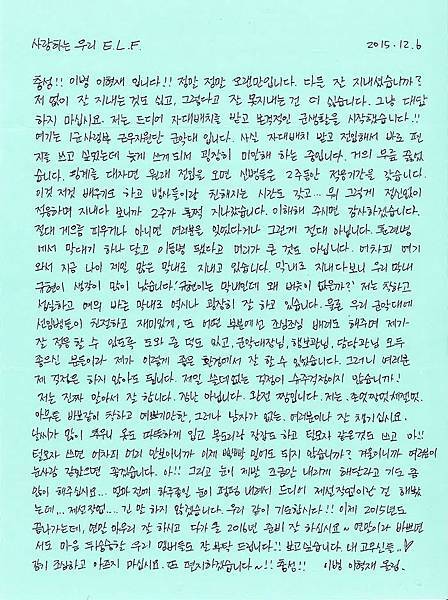 사랑하는 우리 E.L.F. 2015.12.6
충성!! 이병 이혁재 입니다!! 정말 정말 오랜만입니다. 다들 잘 지내셨습니까?
저 없이 잘 지내는 것도 싫고, 그렇다고 잘 못지내는 건 더 싫습니다. 그냥 대답
하지 마십시오. 저는 드디어 자대배치를 받고 본격적인 군생활을 시작했습니다!!
여기는 1군사령부 근무지원단 군악대 입니다. 사실 자대배치 받고 전입해서 바로 편
지를 쓰고 싶었는데 늦게 쓰게 되서 굉장히 미안해 하는 중입니다. 거의 무릎 꿇었
습니다. 핑계를 대자면 원래 전입을 오면 신병들은 2주동안 적응기간을 갖습니다.
이것 저것 배우기도 하고 병사들이랑 친해지는 시간도 갖고... 뭐 그렇게 정신없이
적응하며 지내다 보니까 2주가 훌쩍 지나갔습니다. 이해해 주시면 감사하겠습니다.
절대 게으름 피우거나 아니면 여러분을 잊었다거나 그런게 절대 아닙니다. 훈련병
에서 막대기 하나 달고 이등병 됐다고 머리가 큰 것도 아닙니다. 어차피 여기
와서 지금 나이 제일 많은 막내로 지내고 있습니다. 막내로 지내다보니 우리 막내
규현이 생각이 많이 났습니다. '규현이는 막내인데 왜 버릇이 없을까?' 저는 착하고
성실하고 예의 바른 막내로 역시나 굉장히 잘 하고 있습니다. 물론 우리 군악대에
선임병들이 친절하고 재미있게, 또 어떤 부분에선 조심조심 배려도 해주며 제가
잘 적응 할 수 있도록 도와 준 덕도 있고, 군악대장님, 행보관님, 담당관님 모두
좋으신 분들이라 제가 이렇게 좋은 환경에서 잘 할 수 있었습니다. 그러니 여러분
제 걱정은 하지 않아도 됩니다. 제일 쓸데없는 걱정이 슈주걱정이지 않습니까!
저는 진짜 알아서 잘 합니다. 겁나 아닙니다. 완전 짱입니다. 저는
아무튼 바보같이 착하고 예쁘기만한, 그러나 남자가 없는, 여러분이나 잘 챙기십시오.
날씨가 많이 추우니 옷도 따뜻하게 입고 목도리랑 장갑도 하고 털모자 같은것도 쓰고 아!!
털모자 쓰면 어차피 머리 안보이니까 이제 빡빡 밀어도 되지 않습니까? 겨울이니까 여러분이
눈사람 같았으면 좋겠습니다. 아!! 그리고 눈이 제발 조금만 내리게 해달라고 기도 좀
많이 해주십시오... 얼마전에 하루종일 눈이 펑펑 내려서 드디어 제설작업이란 걸 해봤
는데,,, 제설작업... 긴 말 하지 않겠습니다. 우리 같이 기도합시다!! 이제 2015년도
끝나가는데, 연말 마무리 잘 하시고 다가 올 2016년 준비 잘 하십시오~ 연말이라 바쁘면
서도 마음 뒤숭숭한 우리 멤버들도 잘 부탁 드립니다!! 보고싶습니다. 내 고무신들..♡
감기 조심하고 아프지 마십시오. 또 편지하겠습니다~!! 충성!! 이병 이혁재 올림.